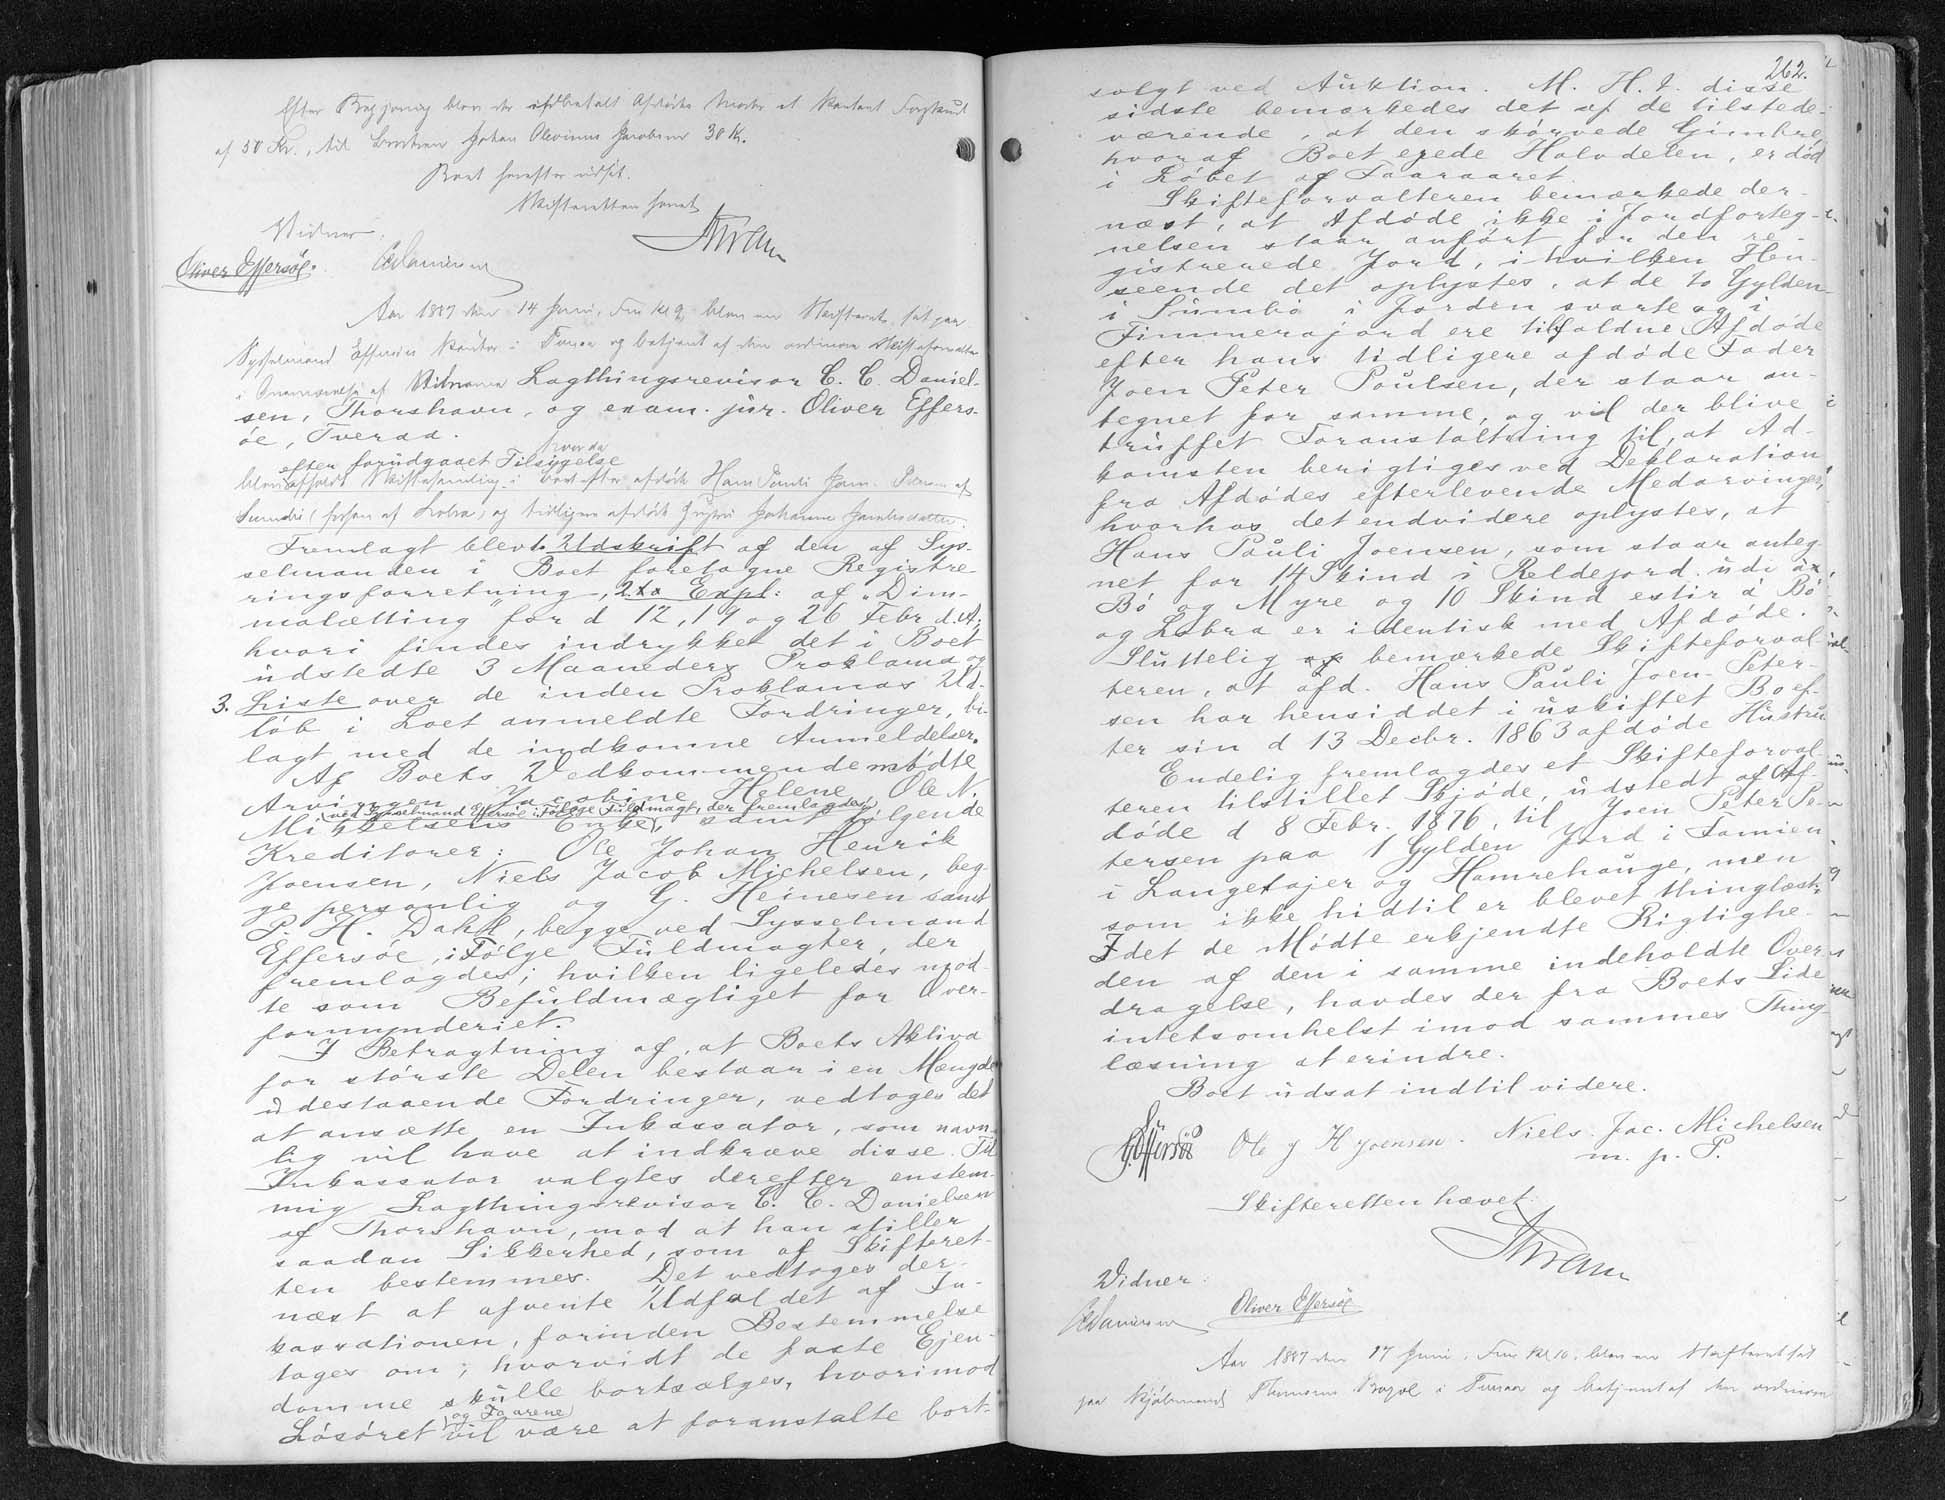 Efter Begjæring blev der udbetalt Afdødes Moder et Kontant Forskud
af 50 Kr., til Broderen Johan Olevinus Jacobsen 30 K.
Boet herefter udsat.
Skifteretten hævet
Vidner.
Oliver Effersøe. CDanielsen
Aar 1887 den 14 Juni, Fm Kl 9 blev en Skifteret sat paa
Sysselmand Effersøes Kontor i Tveraa og betjent af den ordinære Skifteforvalter
i Overværelse af Vidnerne Lagthingsrevisor C. C. Daniel-
sen, Thorshavn, og exam. jur. Oliver Effers-
øe, Tveraa.
hvor da
efter forudgaaet Tilsigelse
blev afholdt Skiftesamling i Boet efter afdøde Hans Pauli Joen Petersen af
Sumbø (    af Lobra) og tidligere afdøde Hustru Johanne Jacobsdatter.
Fremlagt blev 1. Udskrift af den af Sys-
selmanden i Boet foretagne Registre-
ringsforretning, 2. to Expl: af "Dim-
malætting" for d 12, 19 og 26 Febr d. A;
hvori findes indrykket det i Boet
udstedte 3 Maaneders Proklama og
3. Liste over de inden Proklamas Ud-
løb i Boet anmeldte Fordringer, bi-
lagt med de indkomne Anmeldelser.
Af Boets Vedkommende mødte
Arvingen Jacobine Helene Ole N.
(ved Sysselmand Effersøe i Følge Fuldmagt, der fremlagdes)
Mikkelsens Enke, samt følgende
Kreditorer: Ole Johan Henrik
Joensen, Niels Jacob Michelsen, beg-
ge personlig og G. Heinesen samt
P. H. Dahl, begge ved Sysselmand
Effersøe, i Følge Fuldmagter, der
fremlagdes; hvilken ligeledes mød-
te som Befuldmægtiget for Over-
formynderiet.
I Betragtning af, at Boets Aktiva
for største Delen bestaar i en Mængde
udestaaende Fordringer, vedtoges det
at ansætte en Inkassator, som navn-
lig vil have at indkræve disse. Til
Inkassator valgtes derefter enstem-
mig Lagthingsrevisor C. C. Danielsen
af Thorshavn, mod at han stiller
saadan Sikkerhed, som af Skifteret-
ten bestemmes. Det vedtoges der-
næst at afvente Udfaldet af In-
kassationen, forinden Bestemmelse
tages om, hvorvidt de faste Ejen-
domme skulle bortsælges, hvorimod
(og Faarene)
Løsøret vil være at foranstalte bort-
262.
solgt ved Auktion. M. H. t. disse
sidste bemærkedes det af de tilstede-
værende, at den skårvede Gimbre,
hvoraf Boet ejede Halvdelen, er død
i Løbet af Faaraaret.
Skifteforvalteren bemærkede der-
næst, at Afdøde ikke i Jordforteg-
nelsen staar anført for den re-
gistrerede Jord, i hvilken Hen-
seende det oplystes, at de to Gylden
i Sumbø i Jorden svarte og i
Timmerajord ere tilfaldne Afdøde
efter hans tidligere afdøde Fader
Joen Peter Poulsen, der staar an-
tegnet for samme, og vil der blive
truffet Foranstaltning til, at Ad-
komsten berigtiges ved Deklaration
fra Afdødes efterlevende Medarvinger,
hvorhos det endvidere oplystes, at
Hans Pauli Joensen, som staar anteg-
net for 14 Skind i Reldejord udi
Bø og Myre og 10 Skind estir á Bø
og Lobra er identisk med Afdøde.
Sluttelig bemærkede Skifteforval-
teren, at afd. Hans Pauli Joen Peter-
sen har hensiddet i uskiftet Bo ef-
ter sin d 13 Decbr. 1863 afdøde Hustru
Endelig fremlagdes et Skifteforval-
teren tilstillet Skjøde, udstedt af Af-
døde d 8 Febr. 1876, til Joen Peter Pe-
tersen paa 1 Gylden Jord i Famien
i Langetajer og Hamrehauge, men
som ikke hidtil er blevet thinglæst.
Idet de Mødte erkjendte Rigtighe-
den af den i samme indeholdte Over-
dragelse, havdes der fra Boets Side
intetsomhelst imod sammes Thing-
læsning at erindre.
Boet udsat indtil videre.
G. Effersøe Ole J H Joensen. Niels Jac. Michelsen
m. p. P.
Skifteretten hævet.
Vidner:
CDanielsen Oliver Effersøe
Aar 1887 den 17 Juni, Fm Kl 10, blev en Skifteret sat
paa Kjøbmand Thomsens Bopæl i Tveraa og betjent af den ordinære